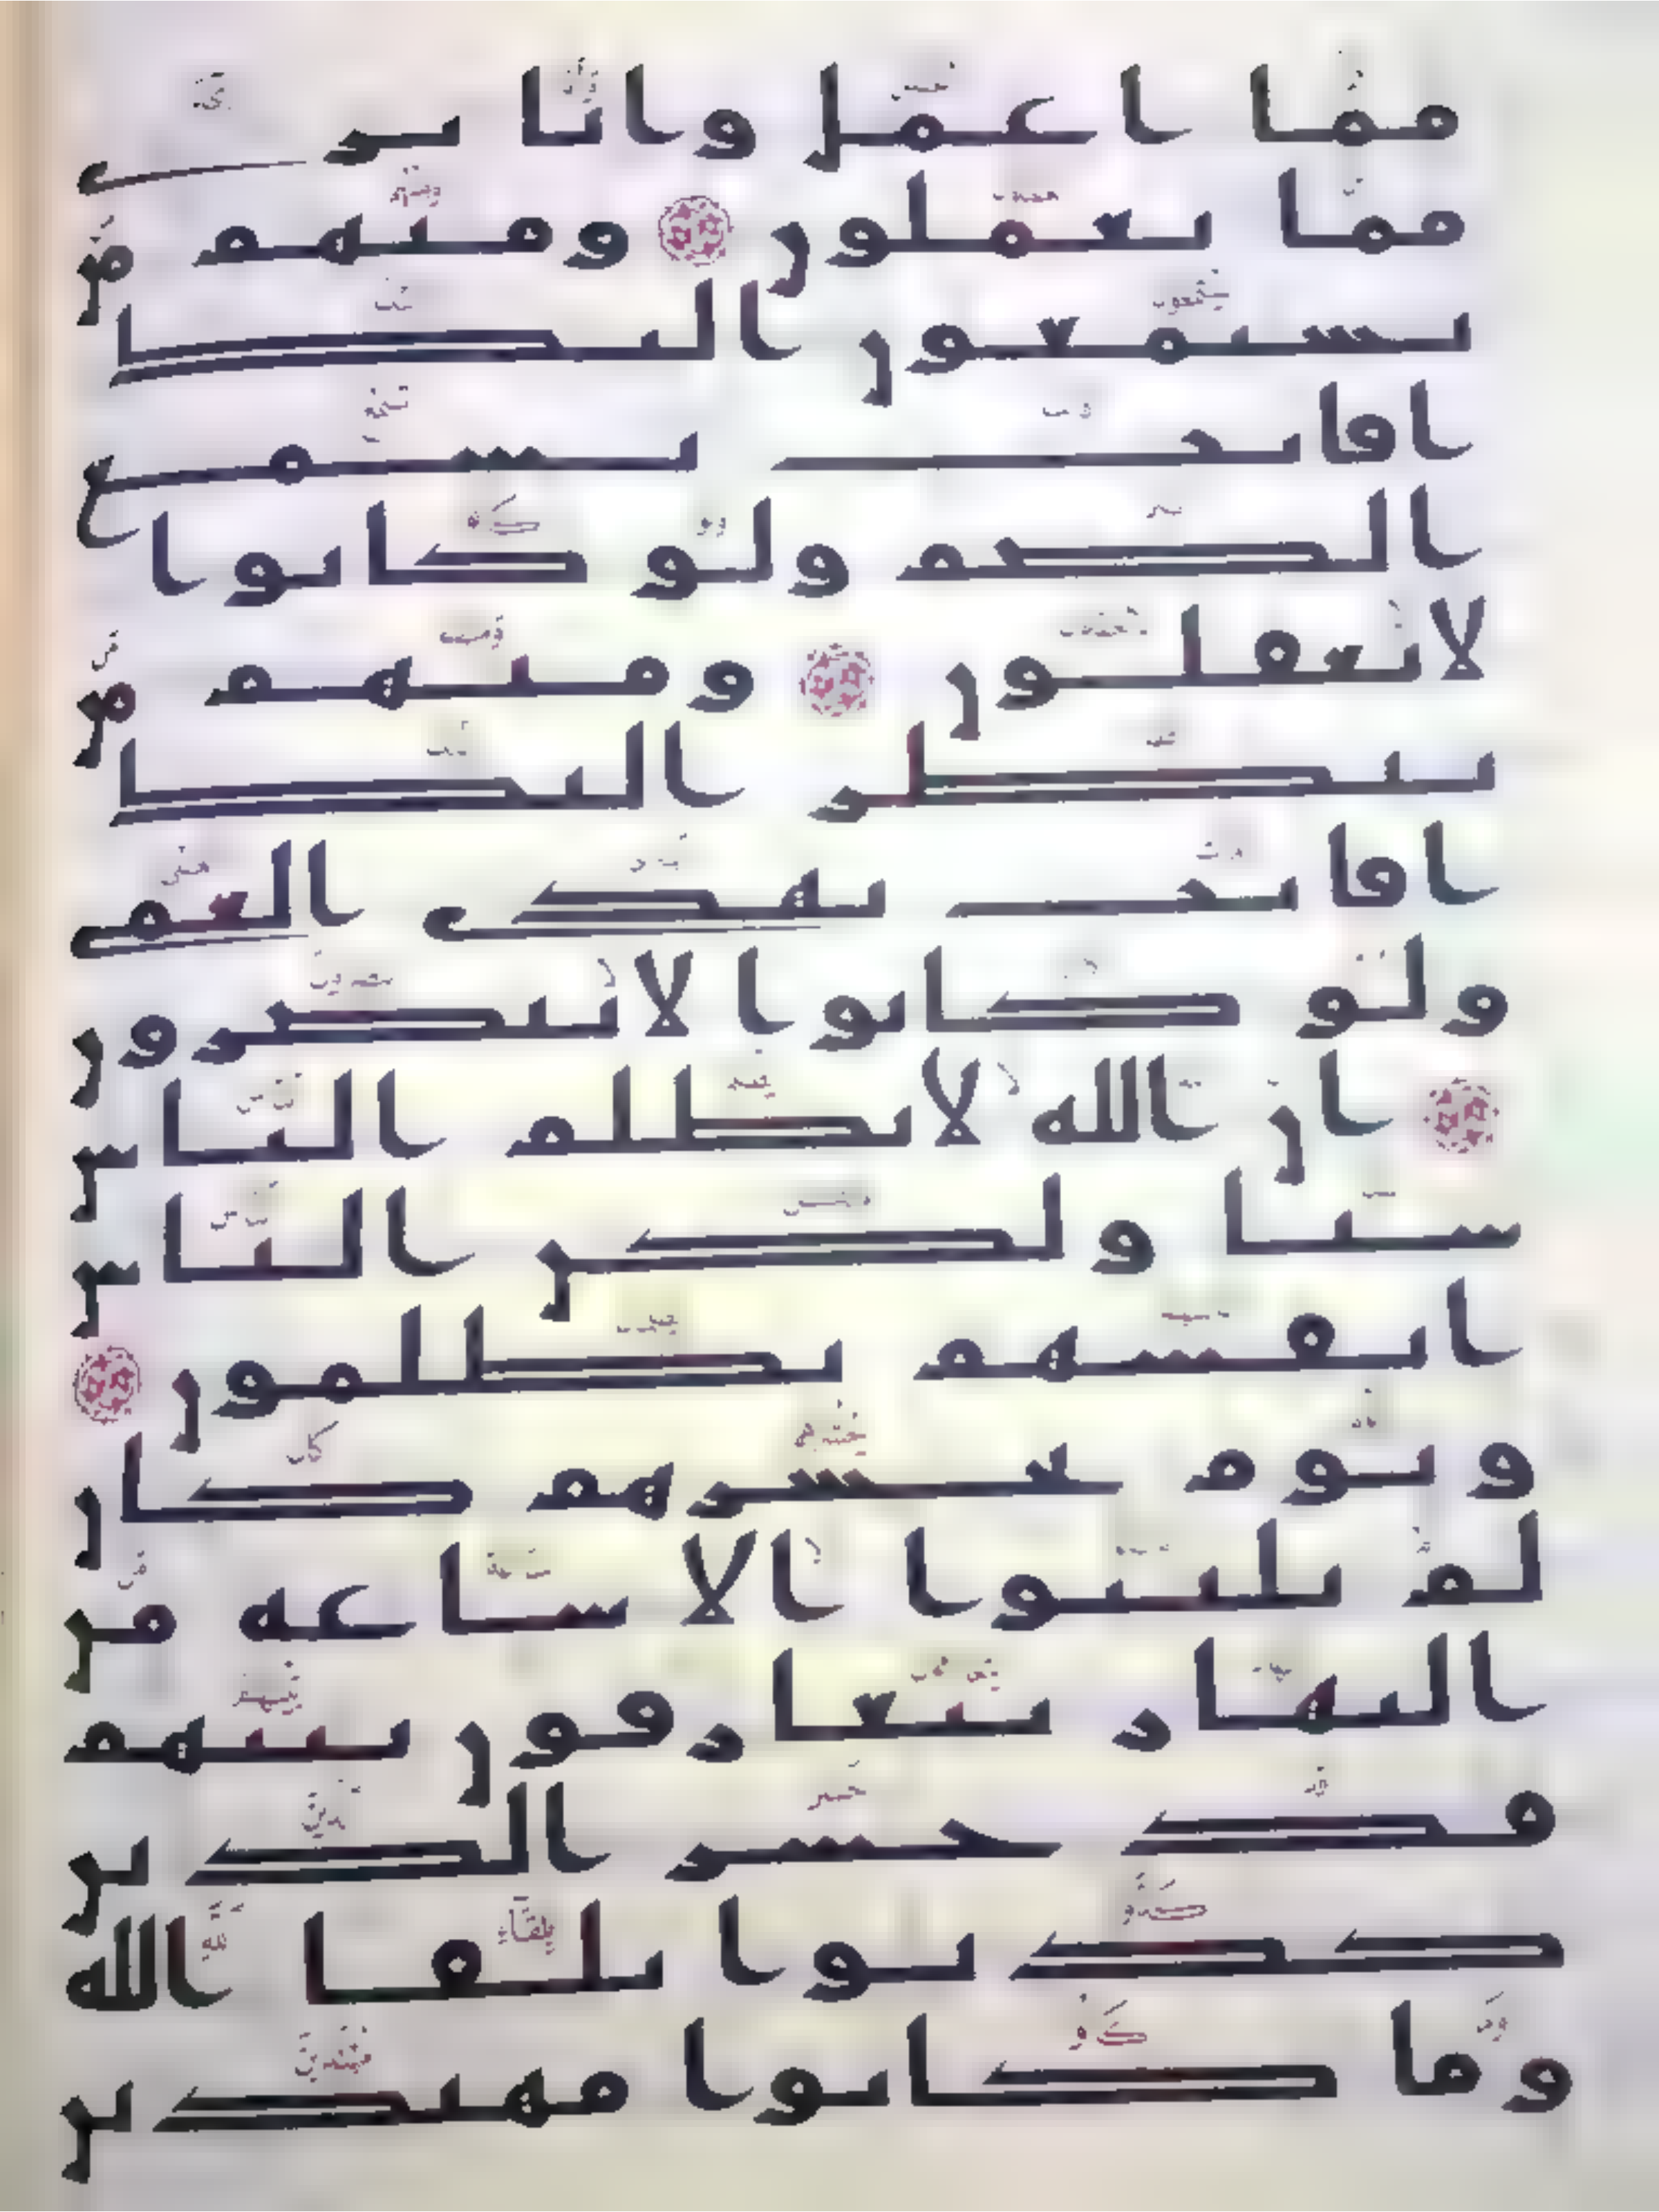 مما اعمل وانا برى
مما تعملون ومنهم من
يستمعون اليك ا
فانت تسمع
الصم ولو كانوا
لا يعقلون ومنهم من
ينظر اليك ا
فانت تهدى العمى
ولو كانوا لا يبصرون
ان الله لا يظلم الناس
شيا ولكن الناس
انفسهم يظلمون
ويوم يحشرهم كان
لم يلبثوا الا ساعة من
النهار يتعارفون بينهم
قد خسر الذين
كذبوا بلقا الله
وما كانوا مهتدين